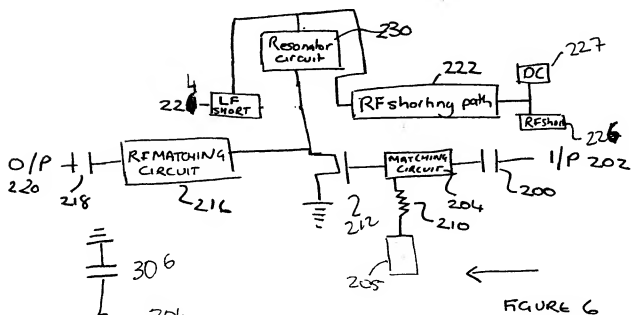 Resonator
circuit
230
227
DC
222
224
LF
SHORT
RF shorting path
RFshort
226
O/P
220
218
RF MATCHING
CIRCUIT
216
212
MATCHING
CIRCUIT
204
210
205
200
I/P 202
306
FIGURE 6